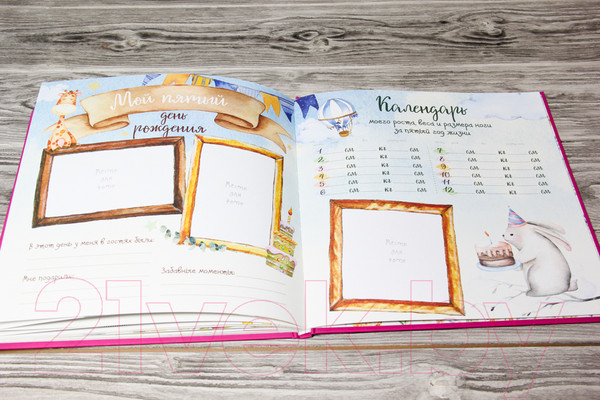 Мой пятый
день
рождения
Место
для
фото
Место
для
фото
В этот день у меня в гостях были:
Мне подарили:
Забавные моменты:
Календарь
моего роста, веса и размера ноги
за пятый год жизни
1 см кг см
2 см кг см
3 см кг см
4 см кг см
5 см кг см
6 см кг см
7 см кг см
8 см кг см
9 см кг см
10 см кг см
11 см кг см
12 см кг см
Место
для
фото
21vek.by